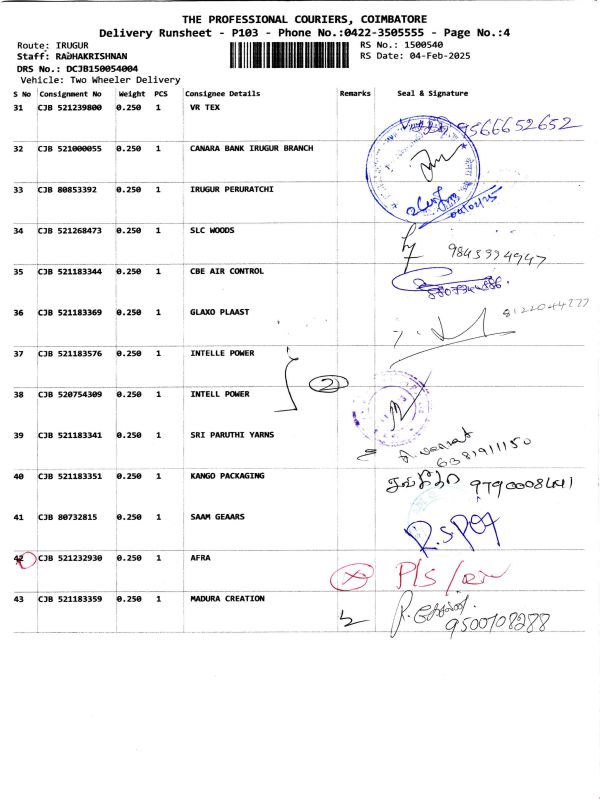 THE PROFESSIONAL COURIERS, COIMBATORE
Delivery Runsheet - P103 - Phone No.:0422-3505555 - Page No.:4
Route: IRUGUR
RS No.: 1500540
Staff: RADHAKRISHNAN
RS Date: 04-Feb-2025
DRS No.: DCJB150054004
Vehicle: Two Wheeler Delivery
S No Consignment No Weight PCS Consignee Details Remarks Seal & Signature
31 CJB 521239800 0.250 1 VR TEX 9566652652
32 CJB 521000055 0.250 1 CANARA BANK IRUGUR BRANCH
33 CJB 80853392 0.250 1 IRUGUR PERURATCHI 04/02/25
34 CJB 521268473 0.250 1 SLC WOODS 9843994947
35 CJB 521183344 0.250 1 CBE AIR CONTROL
36 CJB 521183369 0.250 1 GLAXO PLAAST 8122044777
37 CJB 521183576 0.250 1 INTELLE POWER
2
38 CJB 520754309 0.250 1 INTELL POWER
39 CJB 521183341 0.250 1 SRI PARUTHI YARNS 6381911150
40 CJB 521183351 0.250 1 KANGO PACKAGING
41 CJB 80732815 0.250 1 SAAM GEAARS
42 CJB 521232930 0.250 1 AFRA P/S
43 CJB 521183359 0.250 1 MADURA CREATION 9500708288